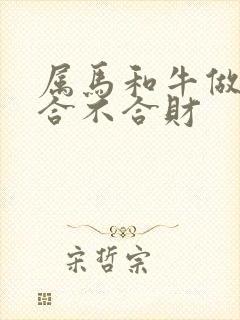 属馬和牛做
合不合財
宋哲宗